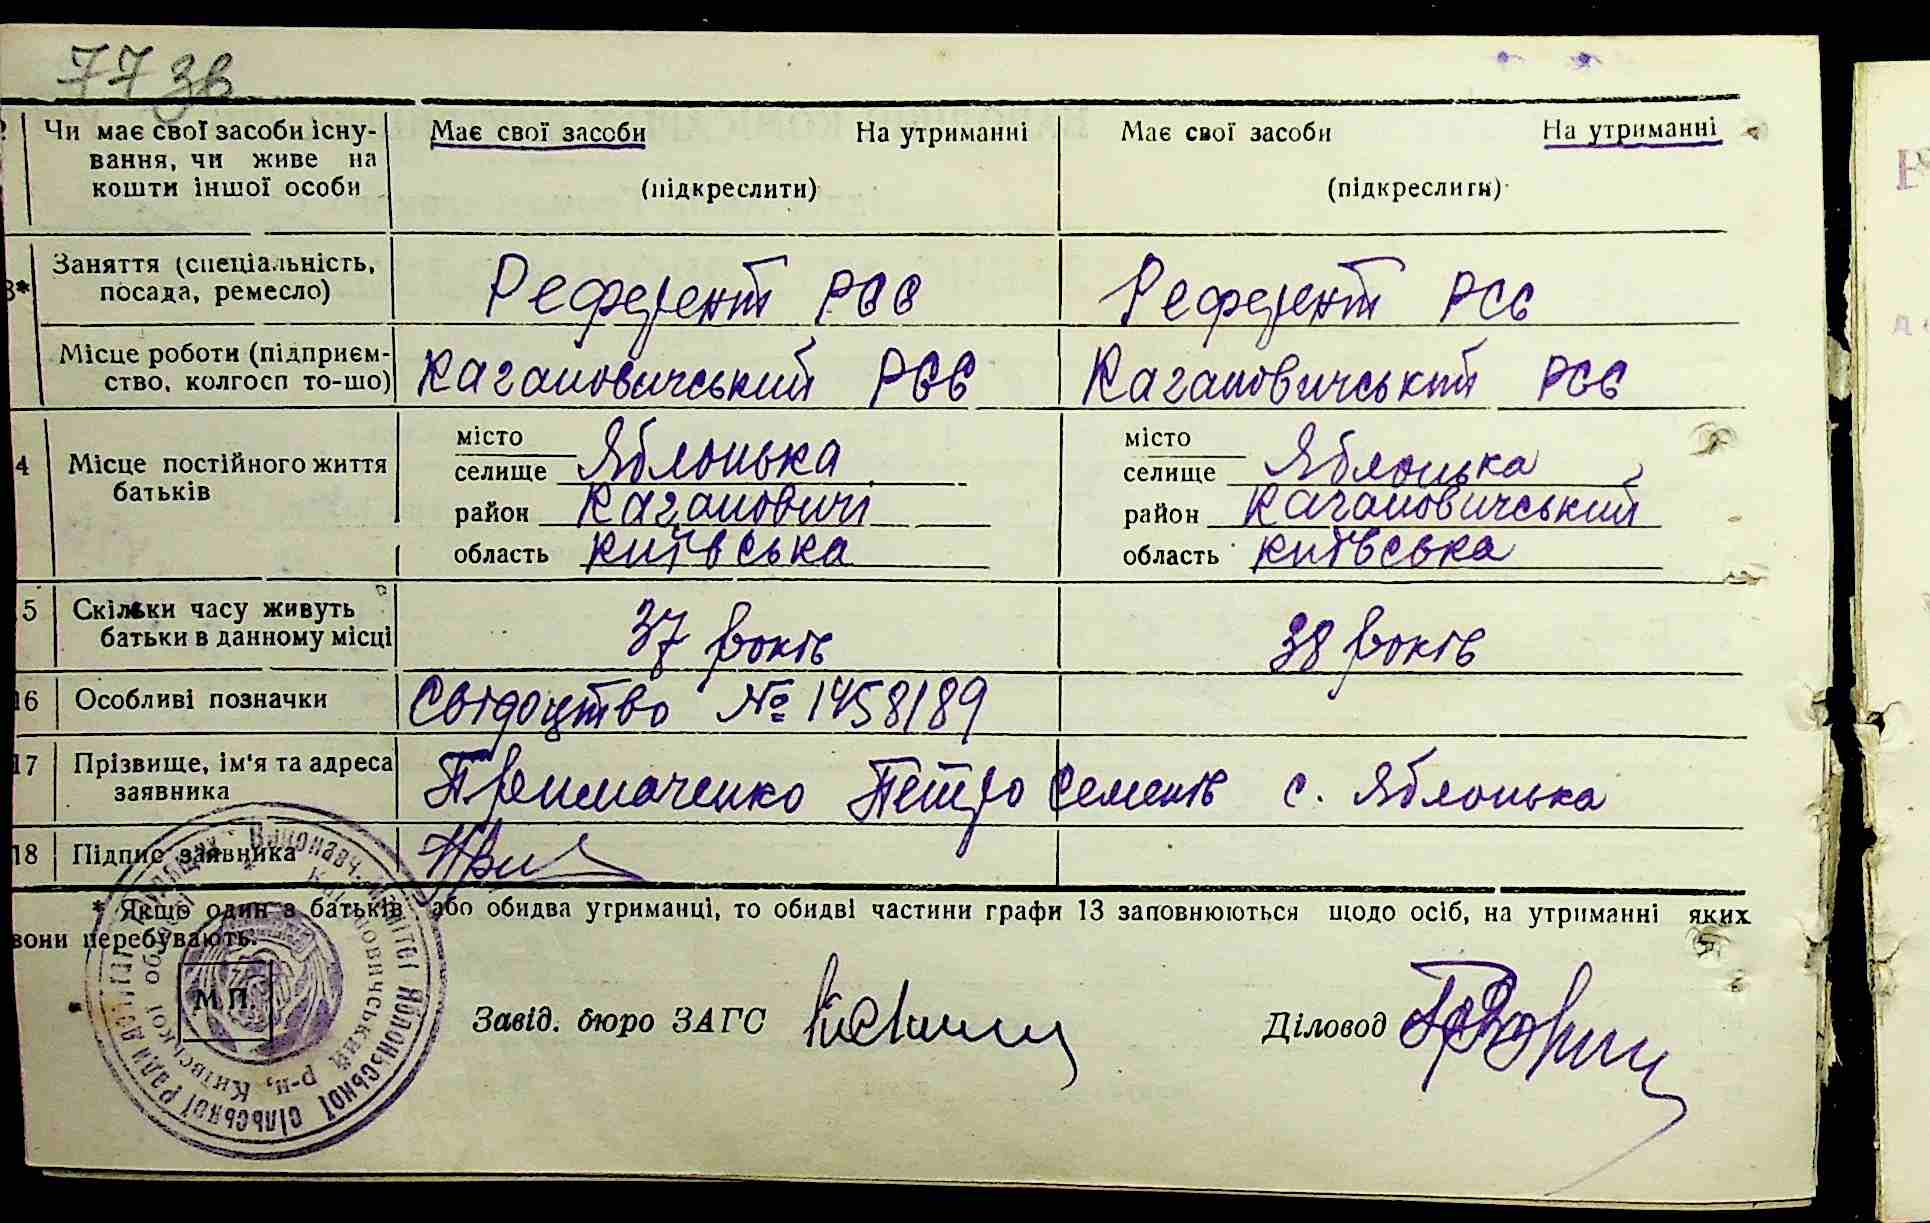 77 зв
Чи має свої засоби існу-
вання, чи живе на
кошти іншої особи
Має свої засоби На утриманні
(підкреслити)
Має свої засоби На утриманні
(підкреслити)
3*
Заняття (спеціальність,
посада, ремесло)
Референт РСС
Референт РСС
Місце роботи (підприєм-
ство, колгосп то-що)
Кагановичський РСС
Кагановичський РСС
4
Місце постійного життя
батьків
місто
селище Яблонька
район Кагановичі
область київська
місто
селище Яблонька
район Кагановичський
область київська
5
Скільки часу живуть
батьки в данному місці
37 років
38 років
16
Особливі позначки
Свідоцтво № 1458189
17
Прізвище, ім'я та адреса
заявника
Примаченко Петро Семенів с. Яблонька
18
Підпис заявника
При
* Якщо один з батьків або обидва утриманці, то обидві частини графи 13 заповнюються щодо осіб, на утриманні яких
вони перебувають.
М.П.
Виконавч. комітет Яблонської сільської ради
Кагановичський р-н, Київської обл.
Завід. бюро ЗАГС
Діловод